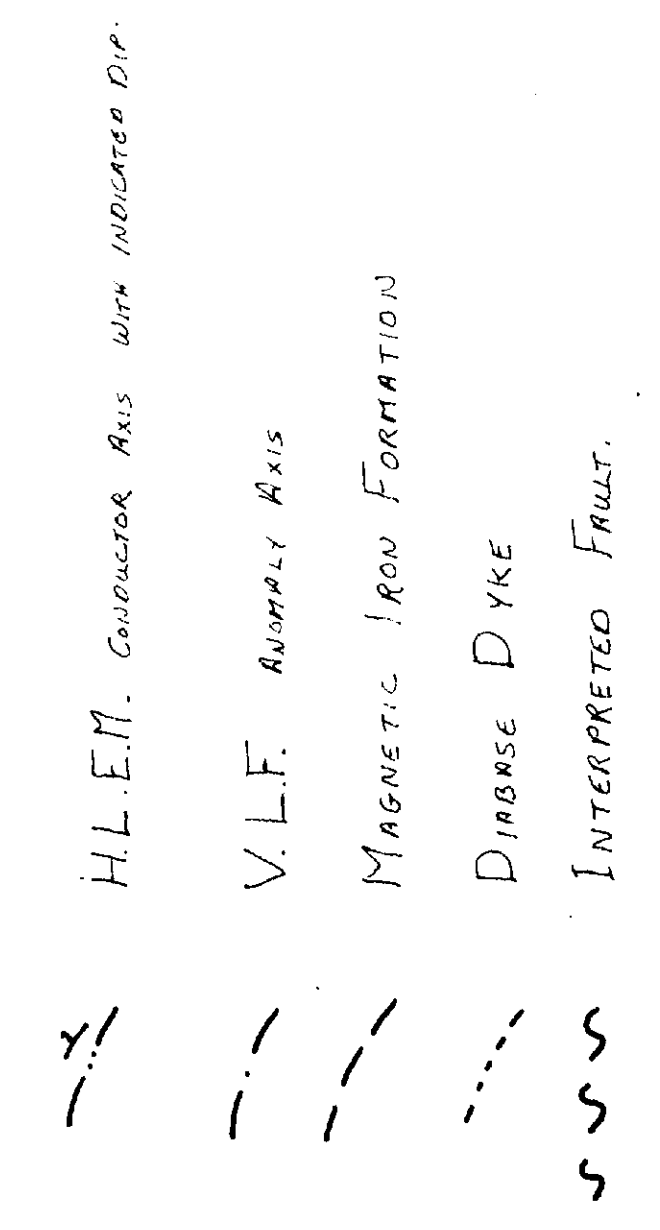 H.L.E.M. CONDUCTOR AXIS WITH INDICATED DIP.
V.L.F. ANOMALY AXIS
MAGNETIC IRON FORMATION
DIABASE DYKE
INTERPRETED FAULT.